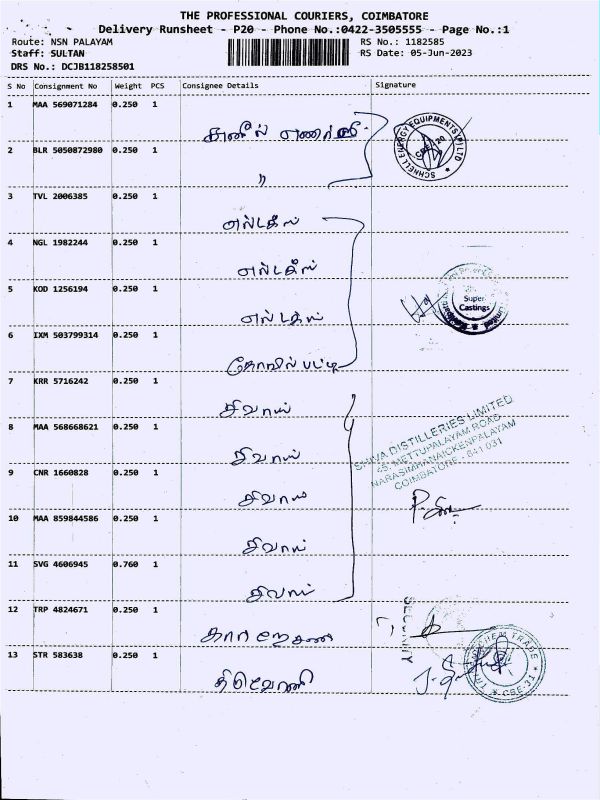 THE PROFESSIONAL COURIERS, COIMBATORE
Delivery Runsheet - P20 - Phone No.:0422-3505555 - Page No.:1
Route: NSN PALAYAM
RS No.: 1182585
Staff: SULTAN
RS Date: 05-Jun-2023
DRS No.: DCJB118258501
S No Consignment No Weight PCS Consignee Details Signature
1 MAA 569071284 0.250 1
சுனில்
SCHNELL ENERGY EQUIPMENTS (P) LTD
CBE 20
2 BLR 5050872980 0.250 1
"
3 TVL 2006385 0.250 1
எல்டகீஸ்
4 NGL 1982244 0.250 1
எல்டகீஸ்
5 KOD 1256194 0.250 1
எல்டகீஸ்
Super
Castings
6 IXM 503799314 0.250 1
கோவில்பட்டி
7 KRR 5716242 0.250 1
சிவாஸ்
8 MAA 568668621 0.250 1
சிவாஸ்
SHIVA DISTILLERIES LIMITED
45, METTUPALAYAM ROAD
NARASIMHANAICKENPALAYAM
COIMBATORE - 641 031
9 CNR 1660828 0.250 1
சிவாஸ்
10 MAA 859844586 0.250 1
சிவாஸ்
11 SVG 4606945 0.760 1
சிவாஸ்
12 TRP 4824671 0.250 1
SECURITY
13 STR 583638 0.250 1
திரிவேணி
CHEM TRADE
CBE-31